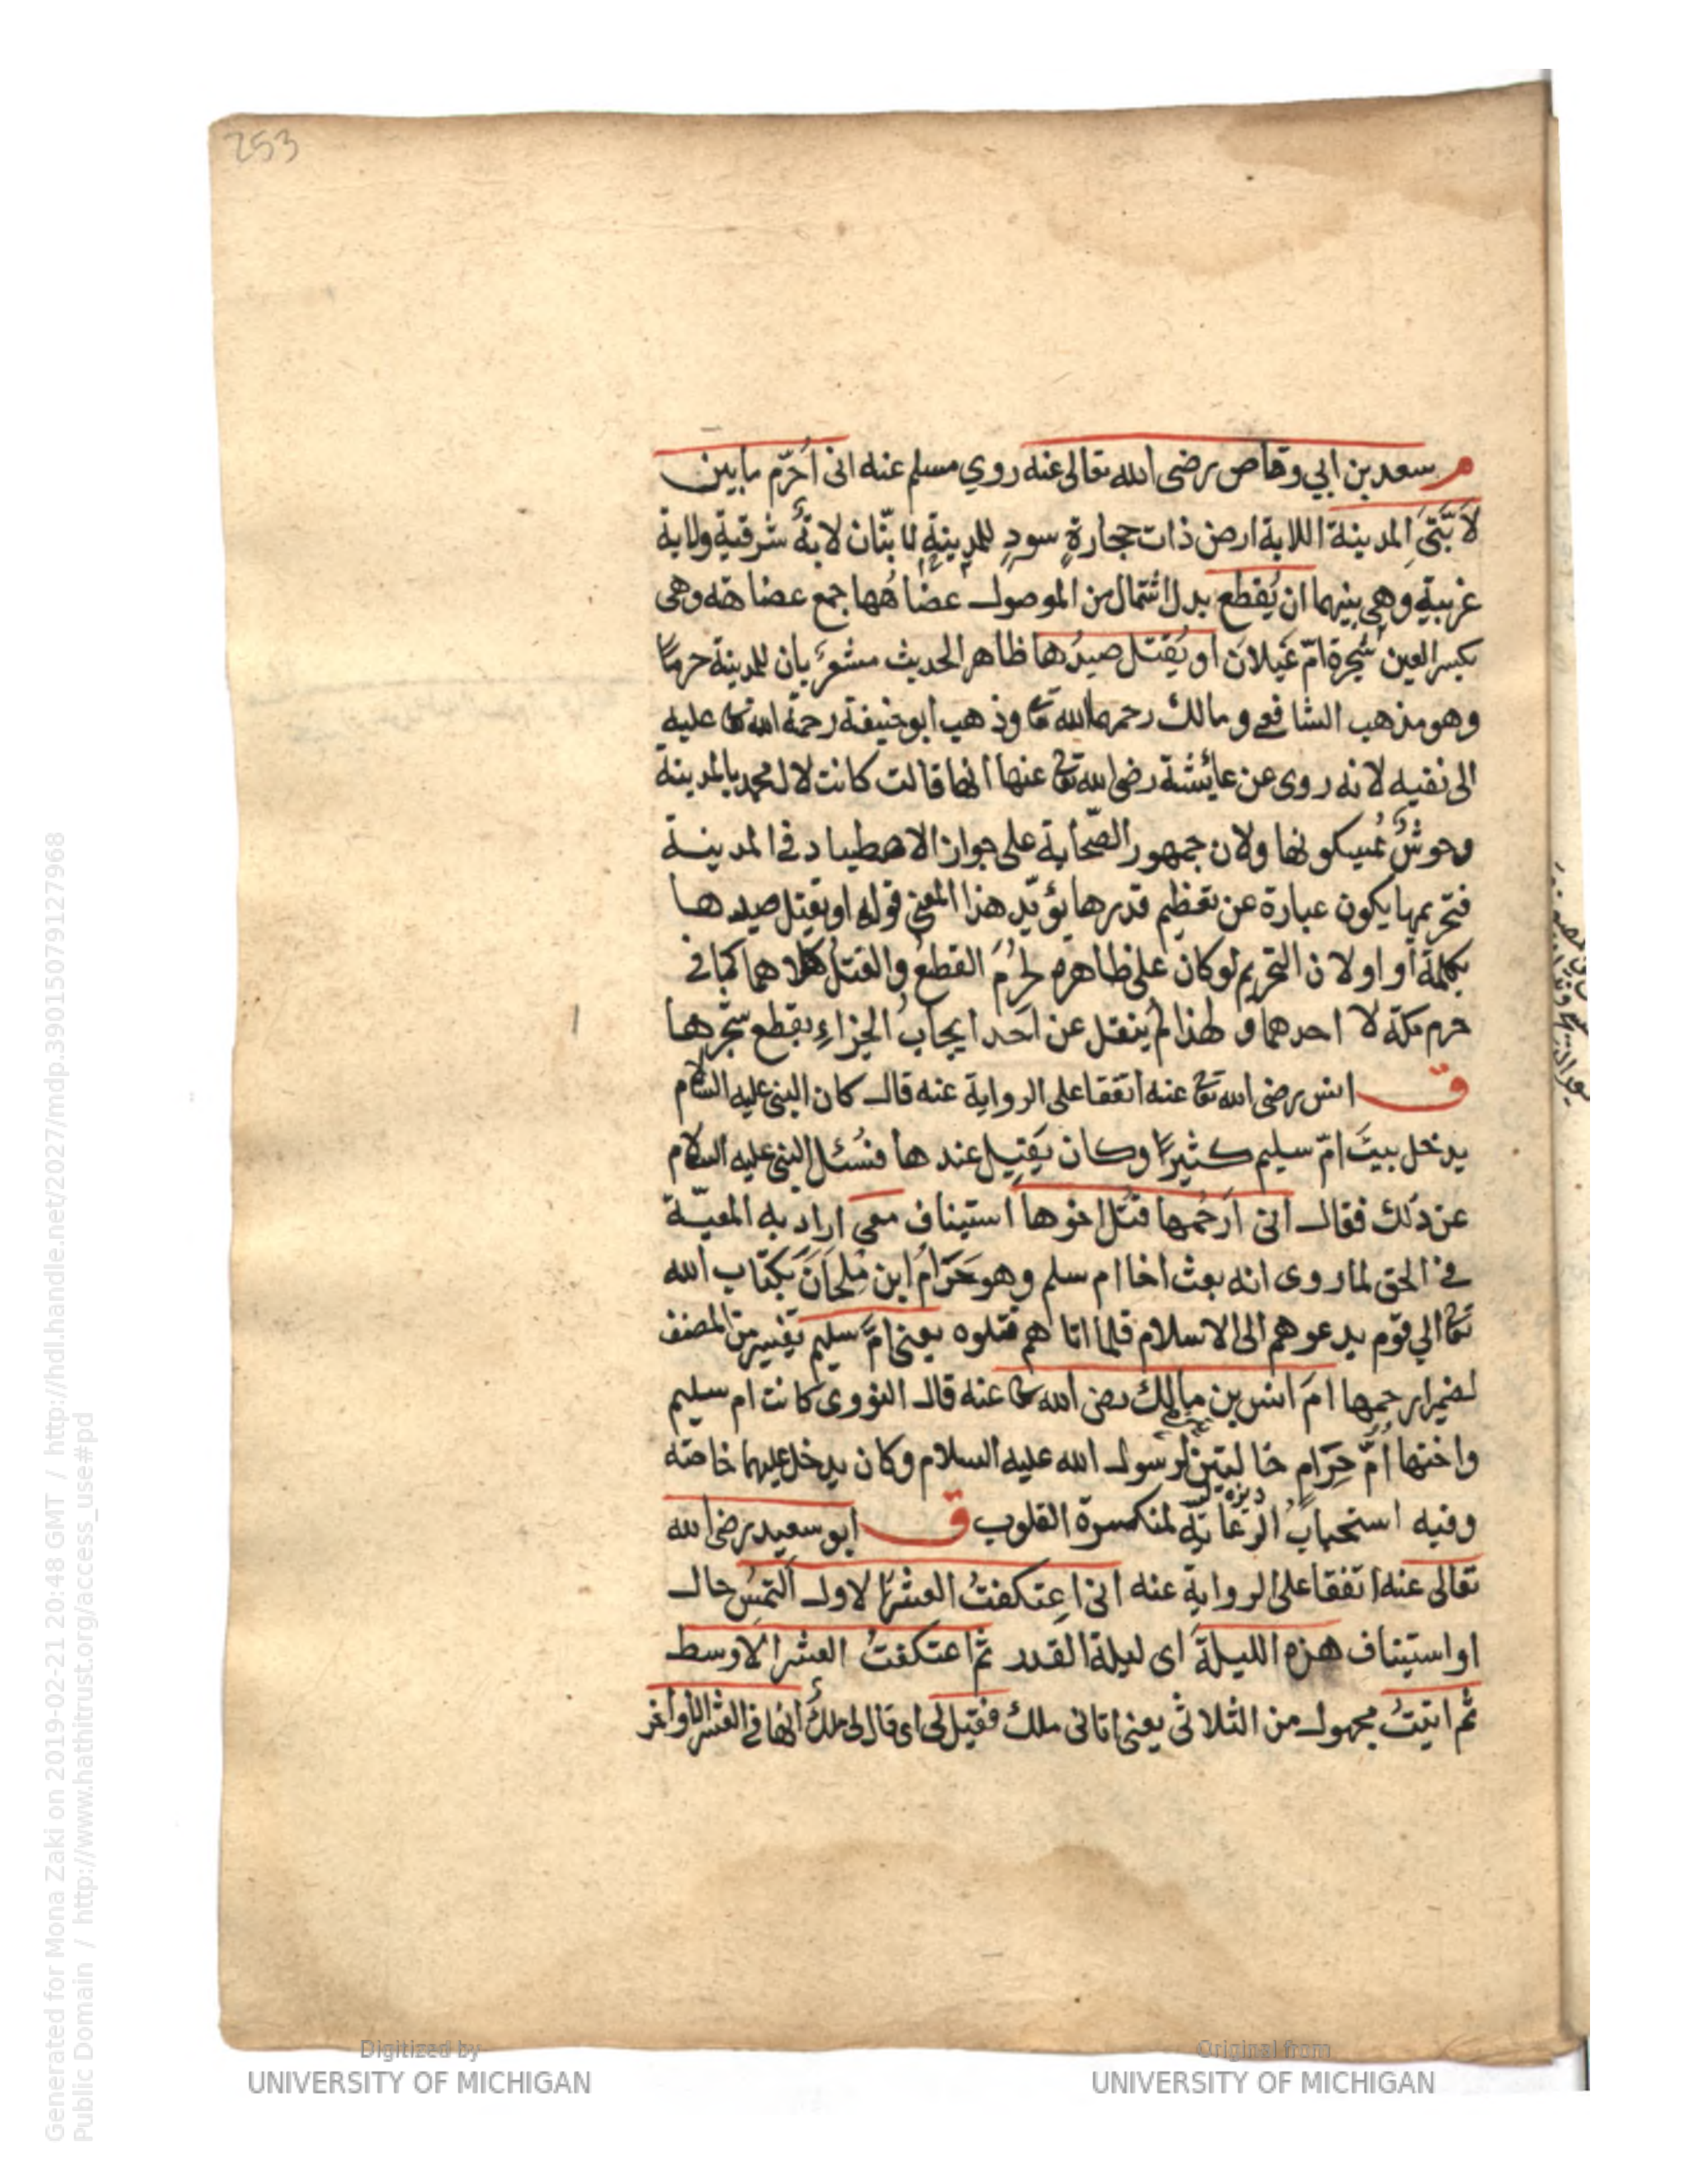 253
م سعد بن ابي وقاص رضى الله تعالى عنه روي مسلم عنه انى اُحَرّم ما بين
لاَبَتَىِ المدينة اللابة ارض ذات حجارةٍ سودٍ للمدينةِ لابتان لابةٌ شرقية ولابة
غربية وهى بينهما ان يُقطع بدل اشتمال من الموصول عضاهُها جمع عضاهة وهى
بكسر العين شجرة امّ غَيلان او يُقتل صيدُها ظاهر الحديث مشعرٌ بان للمدينة حرمًا
وهو مذهب الشافعي ومالك رحمهما الله تعا وذهب ابو حنيفة رحمة الله تعا عليه
الى نفيه لانه روى عن عائشة رضى الله تعا عنها انها قالت كانت لال محمد بالمدينة
وحوشٌ يُمسكونها ولان جمهور الصّحابة على جواز الاصطياد في المدينة
فتحريمها يكون عبارة عن تعظيم قدرها يؤيّد هذا المعنى قوله او يقتل صيدها
بكلمة أو اولان التحريم لو كان على ظاهره لحرُمَ القطعُ والقتل كلاهما كما في
حرم مكة لا احدهما و لهذا لم ينقل عن اَحَد ايجابُ الجزاءِ بقطع شجرها
ق انس رضى الله تعا عنه اتفقا على الرواية عنه قال كان النبى عليه السلام
يدخل بيتَ امّ سليم كثيرًا وكان يَقيل عندها فسُئل النبى عليه السلام
عن ذلك فقال انى اَرحُمها قتل اخوها استيناف معى اراد به المعيّة
في الحق لما روى انه بعث اخا ام سلم وهو حَرَامُ ابن مُلحَانَ بكتاب الله
تعا الي قوم يدعوهم الى الاسلام فلما اتاهم قتلوه يعنى امّ سليم تفسير من المصنف
لضمير ارحمها امَ انس بن مالك رضى الله تعا عنه قال النووى كانت ام سليم
واختها اُمّ حَرَامٍ خالتين لرسول الله عليه السلام وكان يدخل عليهما خاصّة
وفيه استحبابُ الرعاية لمنكسرة القلوب ق ابو سعيد رضى الله
تعالى عنه اتفقا على الرواية عنه انى اعتكفتُ العشر الاول اَلتمسُ حال
او استيناف هذه الليلةَ اى ليلة القدر ثم اعتكفتُ العشر الاوسط
ثم اتيتُ مجهول من الثلاثى يعنى اتانى ملك فقيل لى اى قال لى ملكٌ انها في العشر الاواخر
Digitized by
UNIVERSITY OF MICHIGAN
Original from
UNIVERSITY OF MICHIGAN
Generated for Mona Zaki on 2019-02-21 20:48 GMT / http://hdl.handle.net/2027/mdp.39015079127968
Public Domain / http://www.hathitrust.org/access_use#pd